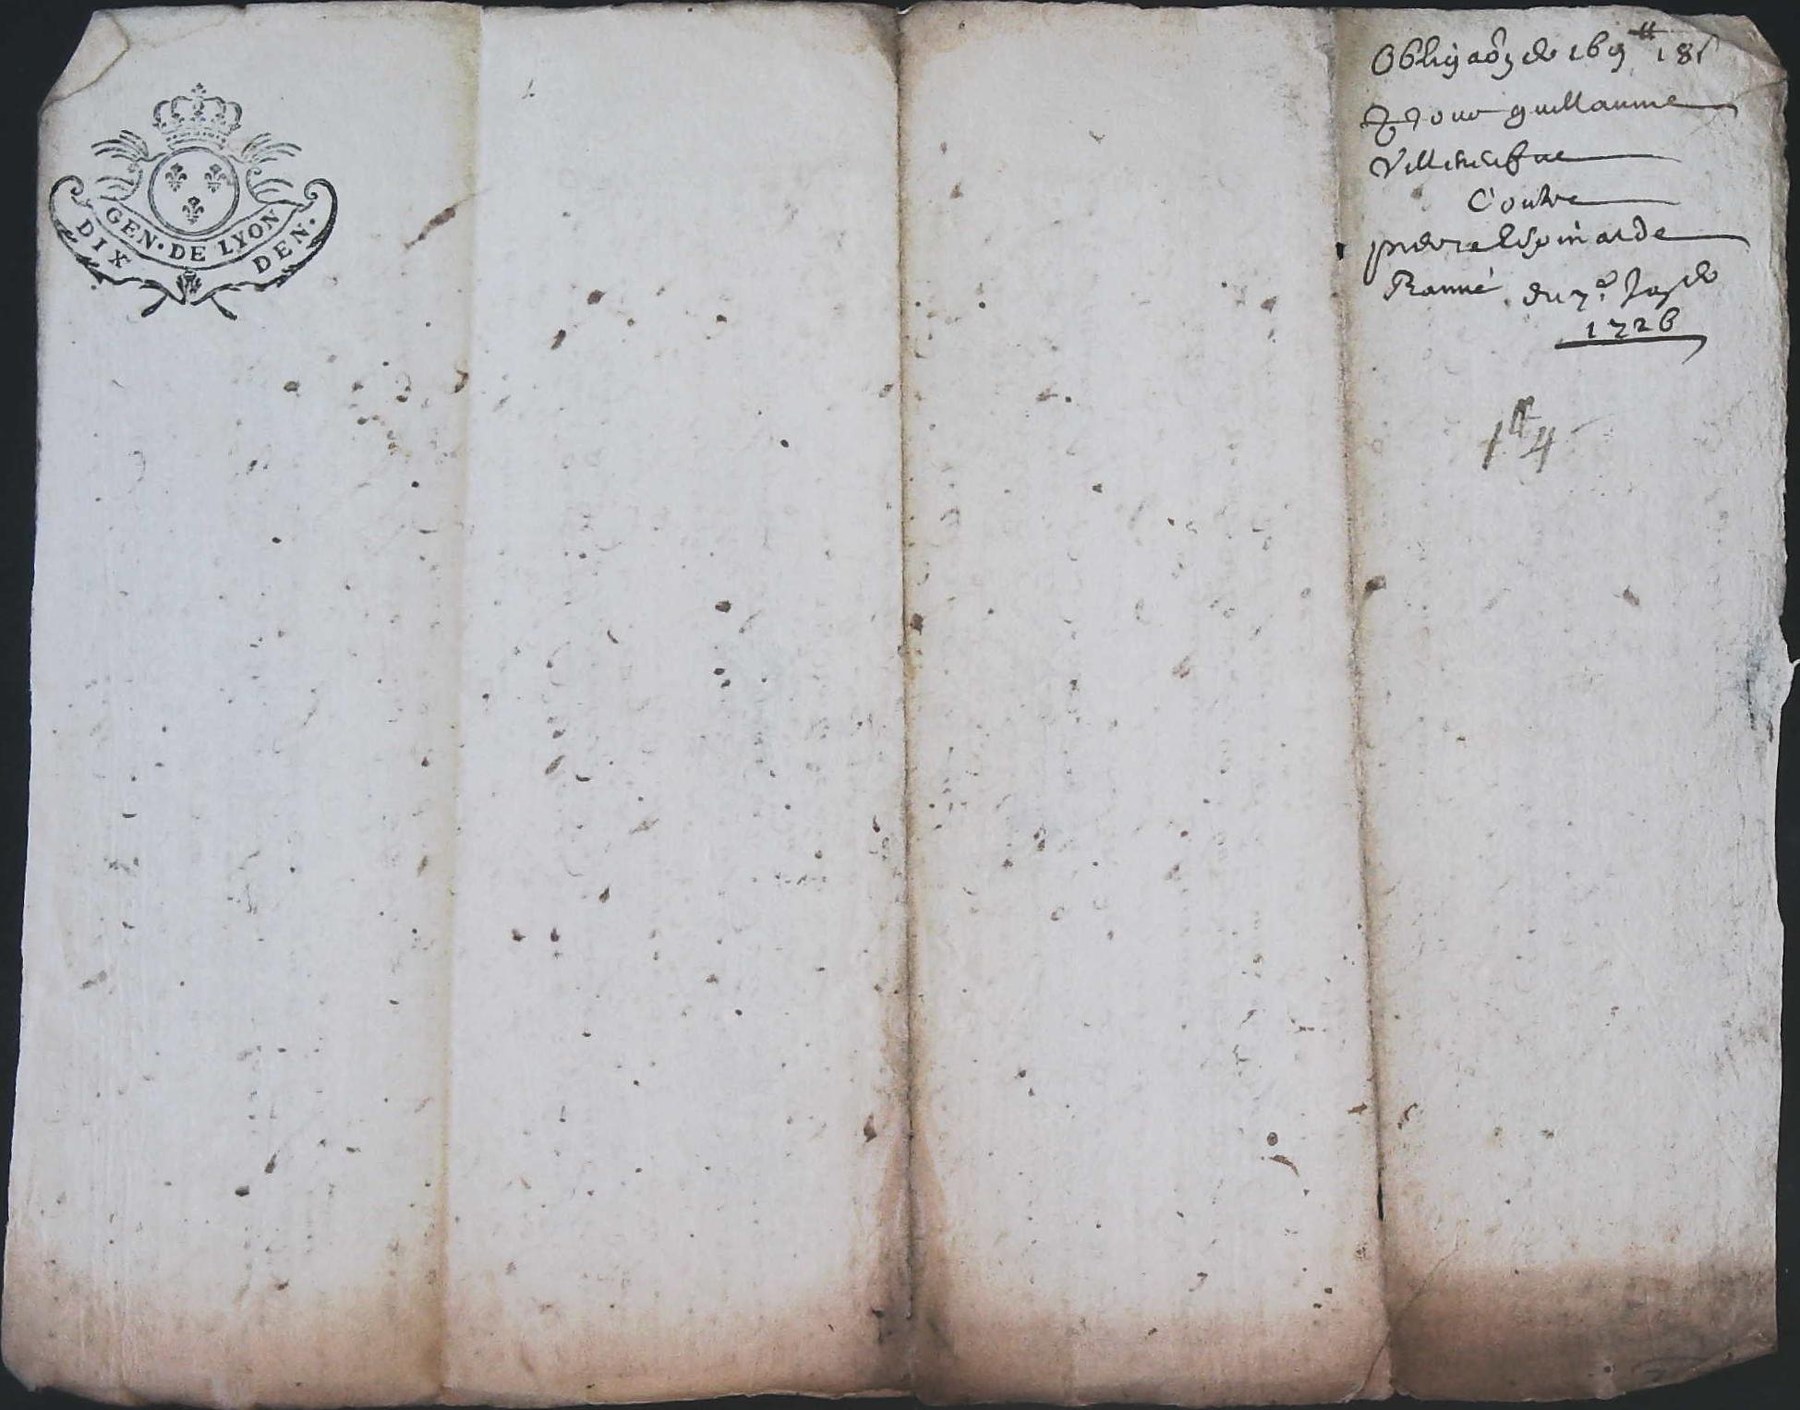 GEN. DE LYON
DIX DEN.
Obligaõn de 169 ₶ 18 s
Pour guillaume
Villeneufve
Contre
pierre Espinarde
du 7e
1726
1 ₶ 4